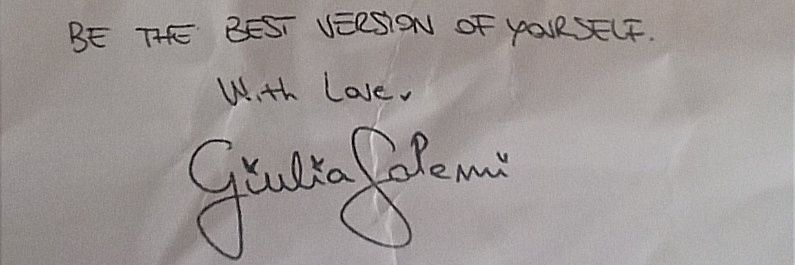 BE THE BEST VERSION OF YOURSELF.
With Love,
Giulia Salemi